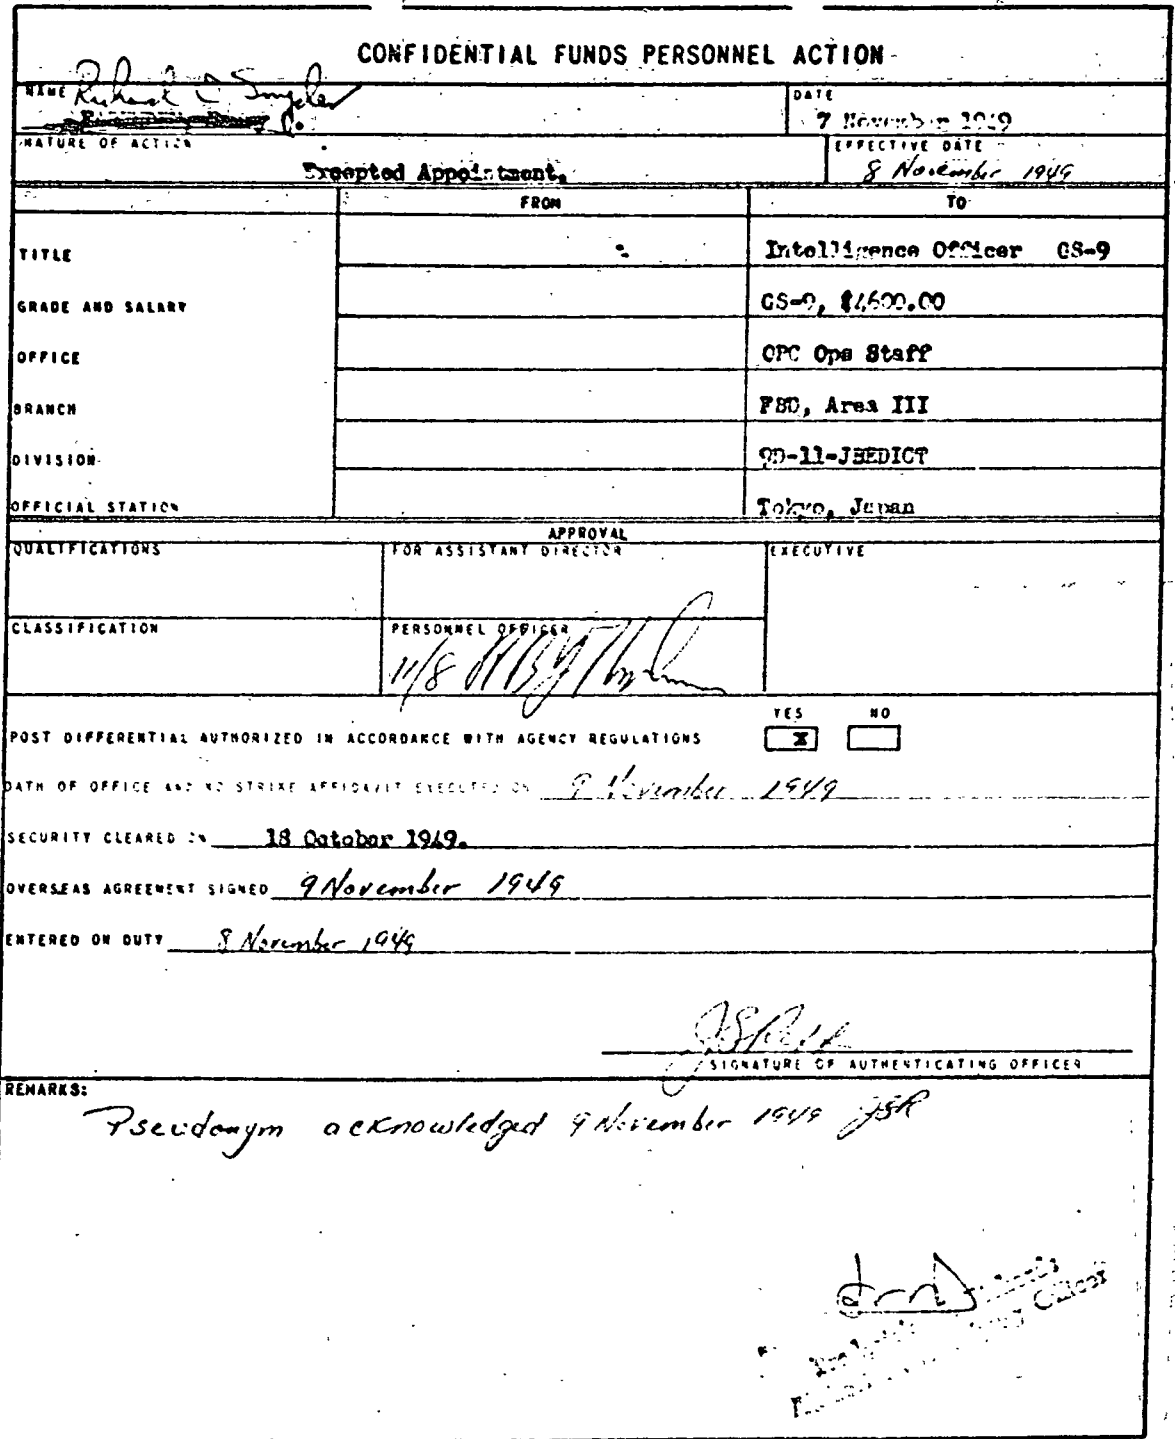 CONFIDENTIAL FUNDS PERSONNEL ACTION
NAME Richard C Snyder
C.
DATE
7 November 1949
NATURE OF ACTION
Excepted Appointment.
EFFECTIVE DATE
8 November 1949
FROM TO
TITLE Intelligence Officer GS-9
GRADE AND SALARY GS-9, $4600.00
OFFICE OPC Ops Staff
BRANCH FBD, Area III
DIVISION 9D-11-JBEDICT
OFFICIAL STATION Tokyo, Japan
APPROVAL
QUALIFICATIONS FOR ASSISTANT DIRECTOR EXECUTIVE
CLASSIFICATION PERSONNEL OFFICER
11/8
YES NO
POST DIFFERENTIAL AUTHORIZED IN ACCORDANCE WITH AGENCY REGULATIONS X
OATH OF OFFICE AND NO STRIKE AFFIDAVIT EXECUTED ON 9 November 1949
SECURITY CLEARED ON 18 October 1949.
OVERSEAS AGREEMENT SIGNED 9 November 1949
ENTERED ON DUTY 8 November 1949
SIGNATURE OF AUTHENTICATING OFFICER
REMARKS:
Pseudonym acknowledged 9 November 1949 JSR
Officer